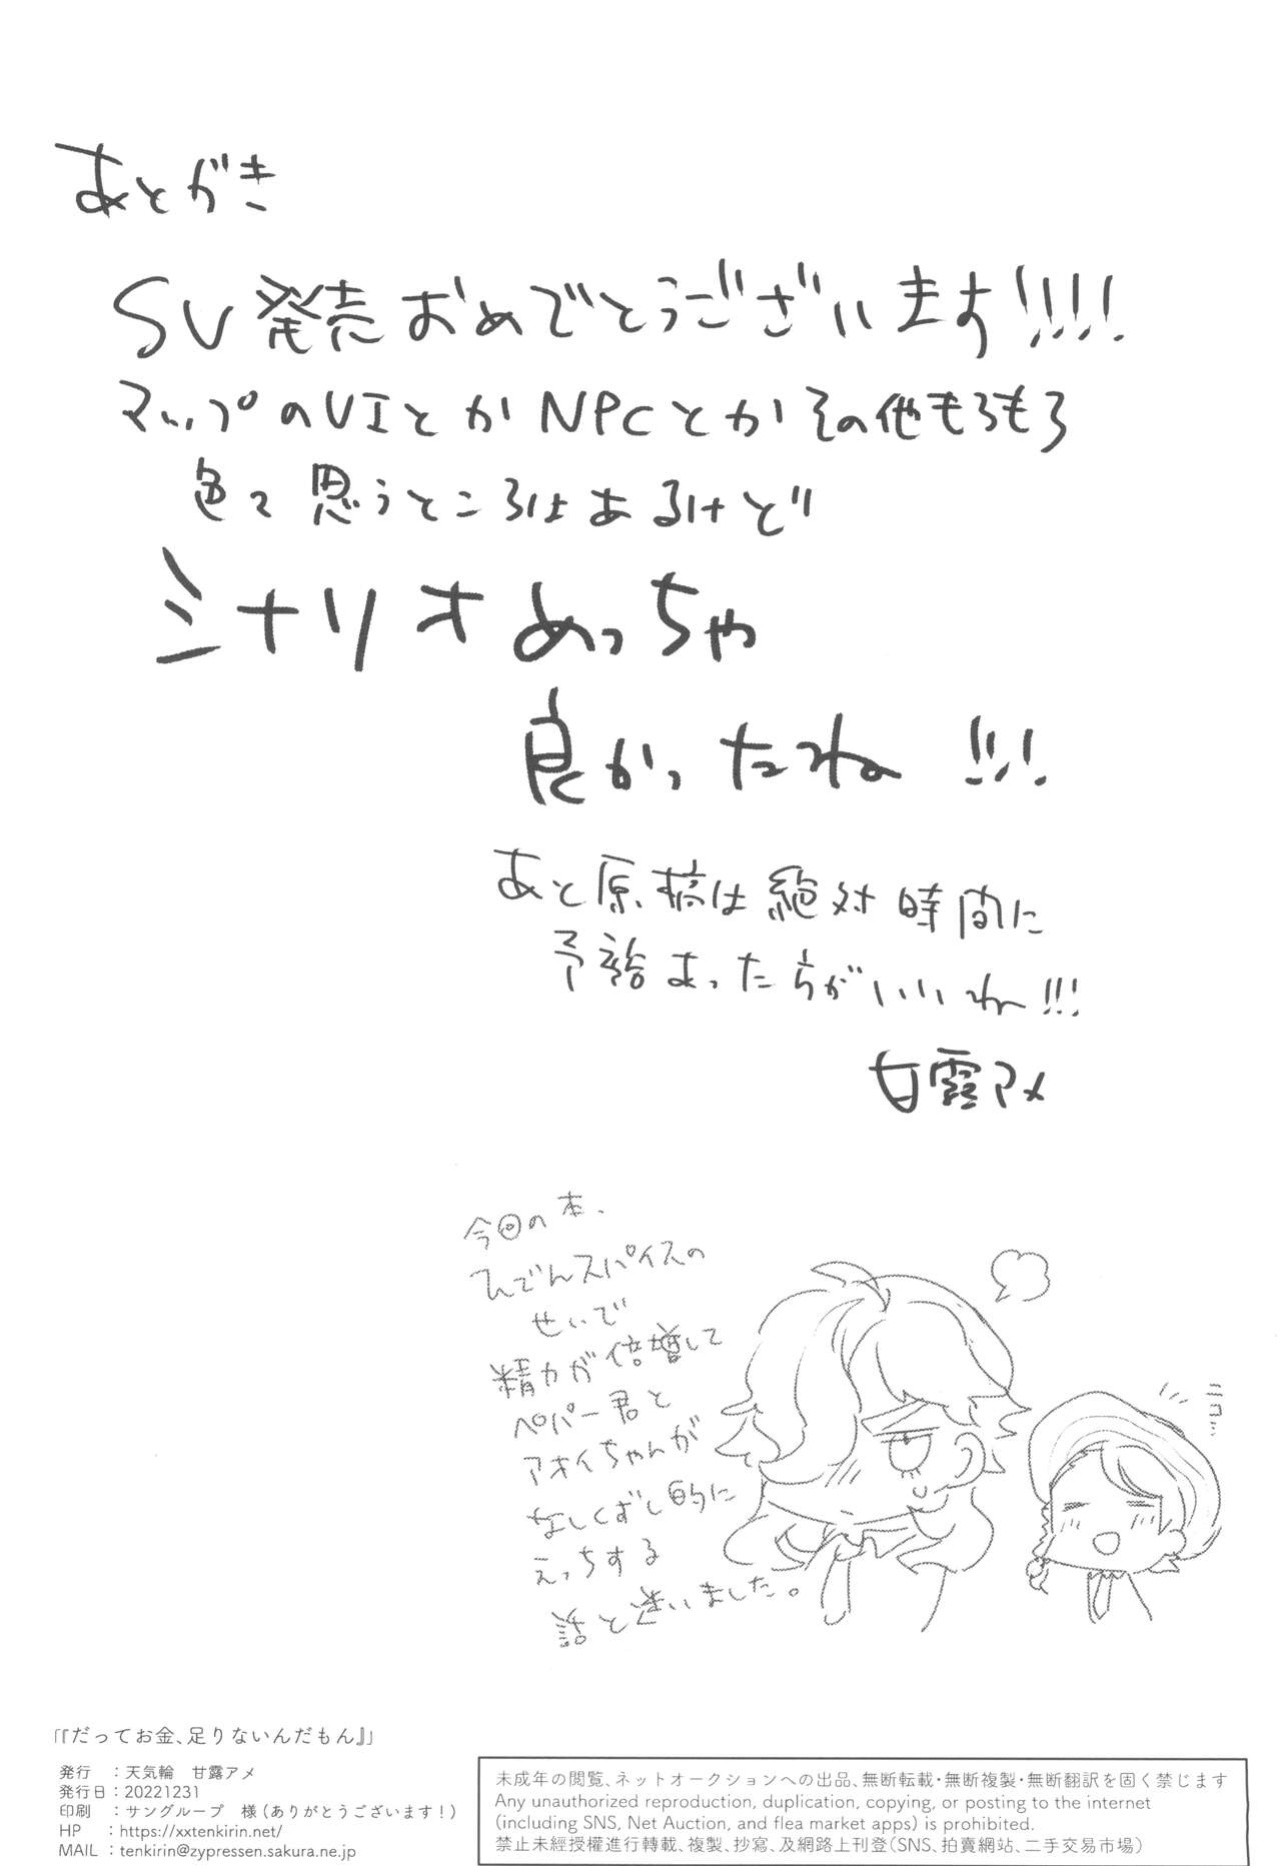 あとがき
SV発売おめでとうございます!!!!
マップのUIとかNPCとかその他もろもろ
色々思うところはあるけど
シナリオめっちゃ
良かったね!!!
あと原稿は絶対時間に
予裕あった方がいいね!!!
甘露アメ
今回の本、
ひでんスパイスの
せいで
精力が倍増して
ペパー君と
アオイちゃんが
なしくずし的に
えっちする
話と迷いました。
ニコ…
「『だってお金、足りないんだもん』」
発行　：天気輪　甘露アメ
発行日：20221231
印刷　：サングループ　様（ありがとうございます！）
HP　：https://xxtenkirin.net/
MAIL ：tenkirin@zypressen.sakura.ne.jp
未成年の閲覧、ネットオークションへの出品、無断転載・無断複製・無断翻訳を固く禁じます
Any unauthorized reproduction, duplication, copying, or posting to the internet
(including SNS, Net Auction, and flea market apps) is prohibited.
禁止未經授權進行轉載、複製、抄寫、及網路上刊登（SNS、拍賣網站、二手交易市場）